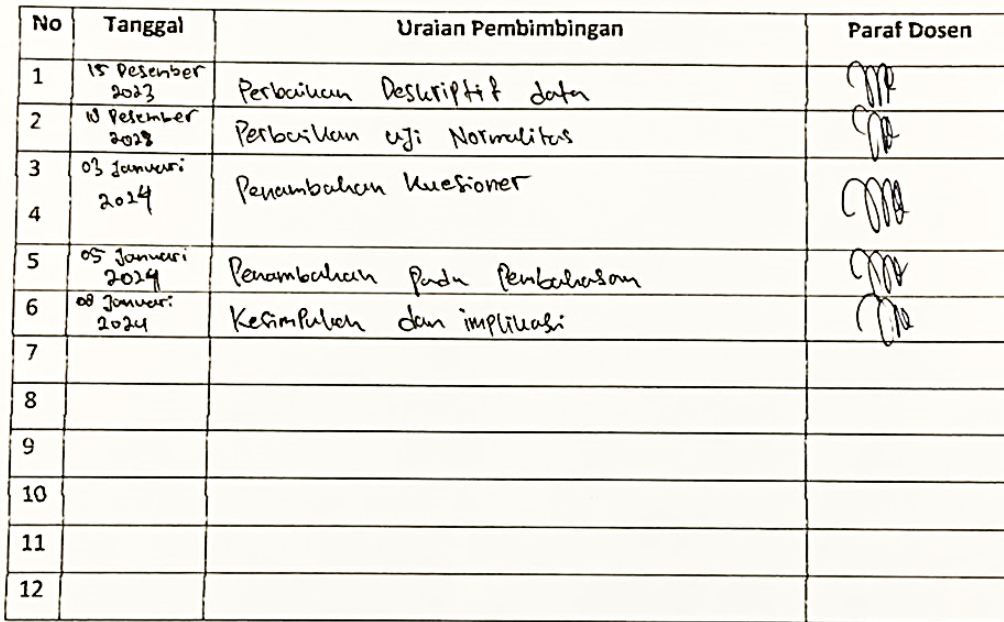 No Tanggal Uraian Pembimbingan Paraf Dosen
1 15 Desember 2023 Perbaikan Deskriptif data
2 Desember 2023 Perbaikan uji Normalitas
3 03 Januari 2024 Penambahan Kuesioner
4
5 05 Januari 2024 Penambahan Pada Pembahasan
6 08 Januari 2024 Kesimpulan dan implikasi
7
8
9
10
11
12